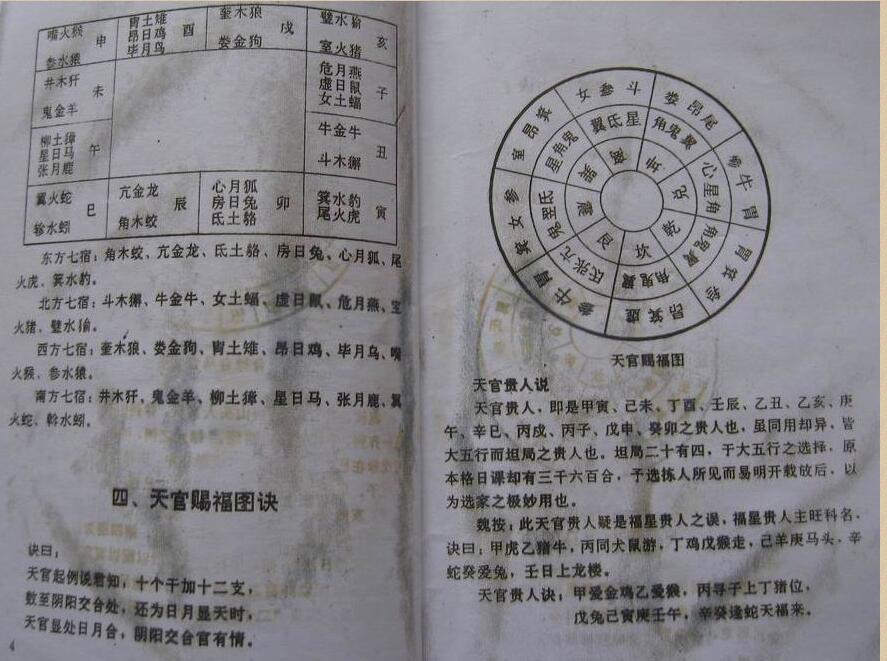 嘴火猴 申 胃土雉 昴日鸡 毕月乌 酉 奎木狼 娄金狗 戌 壁水貐 室火猪 亥
参水猿
井木犴 鬼金羊 未 危月燕 虚日鼠 女土蝠 子
柳土獐 星日马 张月鹿 午 牛金牛 斗木獬 丑
翼火蛇 轸水蚓 巳 亢金龙 角木蛟 辰 心月狐 房日兔 氐土貉 卯 箕水豹 尾火虎 寅
东方七宿：角木蛟、亢金龙、氐土貉、房日兔、心月狐、尾
火虎、箕水豹。
北方七宿：斗木獬、牛金牛、女土蝠、虚日鼠、危月燕、室
火猪、壁水貐。
西方七宿：奎木狼、娄金狗、胃土雉、昴日鸡、毕月乌、嘴
火猴、参水猿。
南方七宿：井木犴、鬼金羊、柳土獐、星日马、张月鹿、翼
火蛇、轸水蚓。
四、天官赐福图诀
诀曰：
天官起例说君知，十个干加十二支，
数至阴阳交合处，还为日月显天时，
天官显处日月合，阴阳交合官有情。
4
女参斗
娄昴尾
牛胃
翼氐星
角鬼翼
心星角
角鬼翼
角鬼翼
氐张亢
星角鬼
离
兑
乾
坎
艮
昴箕虚
室昴箕
箕女参
参牛胃
天官赐福图
天官贵人说
天官贵人，即是甲寅、己未、丁酉、壬辰、乙丑、乙亥、庚
午、辛巳、丙戍、丙子、戊申、癸卯之贵人也，虽同用却异，皆
大五行而坦局之贵人也。坦局二十有四，于大五行之选择，原
本格日课却有三千六百合，予选拣人所见而易明开载放后，以
为选家之极妙用也。
魏按：此天官贵人疑是福星贵人之误，福星贵人主旺科名，
诀曰：甲虎乙猪牛，丙同犬鼠游，丁鸡戊猴走，己羊庚马头，辛
蛇癸爱兔，壬日上龙楼。
天官贵人诀：甲爱金鸡乙爱猴，丙寻子上丁猪位，
戊兔己寅庚壬午，辛癸逢蛇天福来。